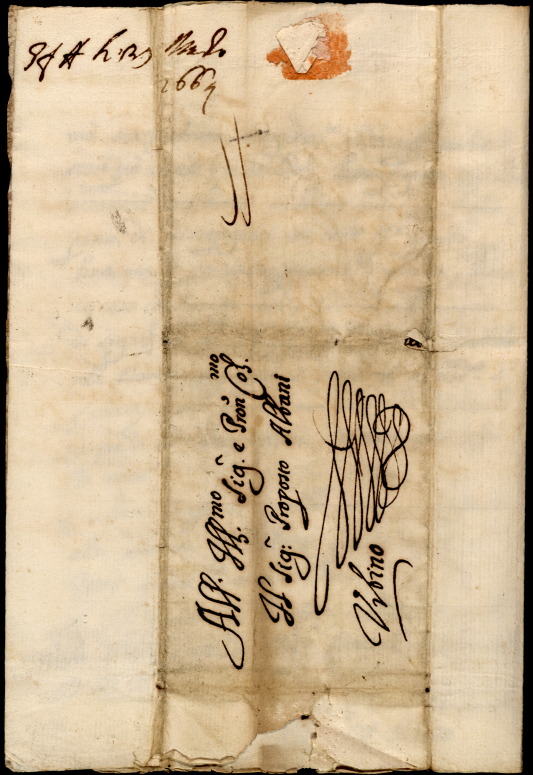 1667
All' Ill.mo Sig.r e Pron Col.mo
Il Sig.r Proposto Albani
Vrbino